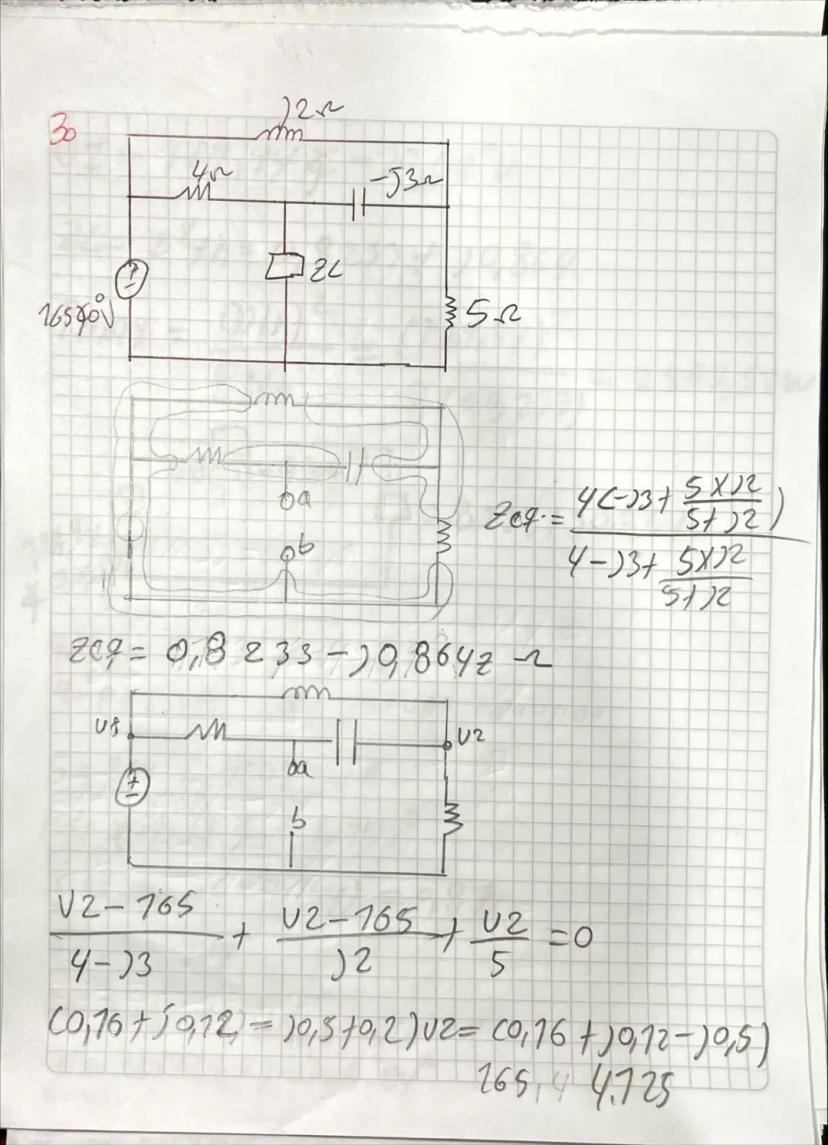 30
j2Ω
4Ω
-j3Ω
ZL
165∠0°V
5Ω
a
b
Zeq = 4(-j3 + 5×j2 / 5+j2) / 4-j3 + 5×j2 / 5+j2
Zeq = 0,8233 - j0,8642 Ω
V1
V2
a
b
V2 - 165 / 4-j3 + V2 - 165 / j2 + V2 / 5 = 0
(0,16 + j0,12 = j0,5 + 0,2) V2 = (0,16 + j0,12 - j0,5)
165
4.125